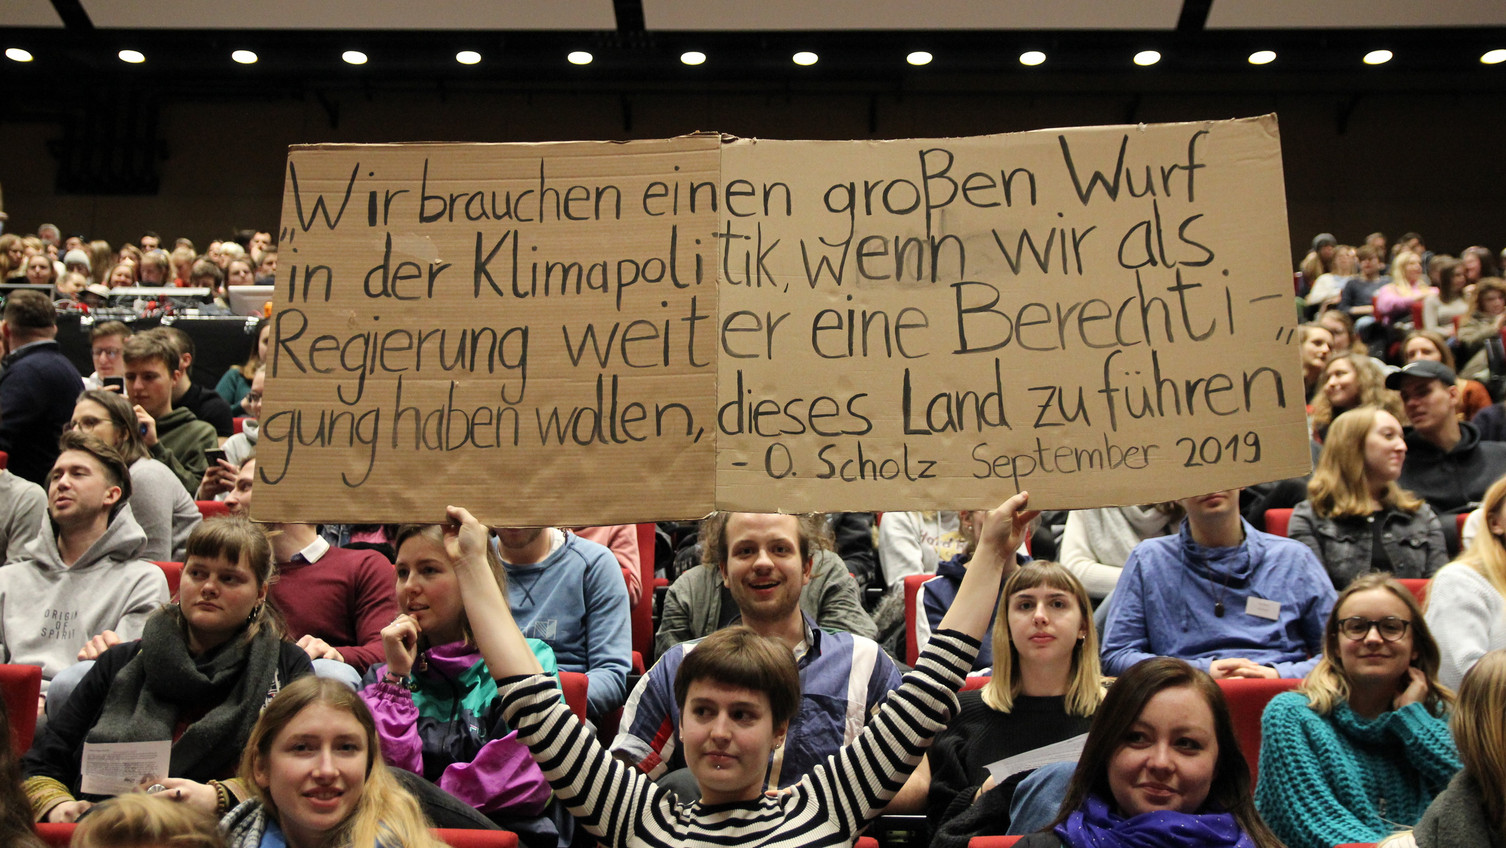 „Wir brauchen einen großen Wurf
in der Klimapolitik, wenn wir als
Regierung weiter eine Berechti-
gung haben wollen, dieses Land zu führen"
- O. Scholz September 2019
ORIGIN
OF